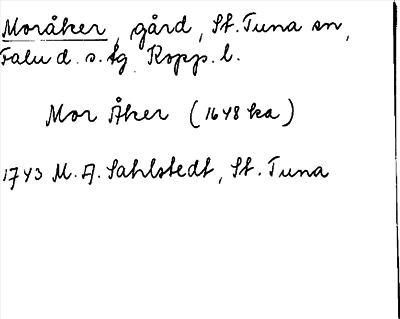 Moråker, gård, St. Tuna sn,
Falu d. s. tg Kopp. l.
Mor Åker (1648 ka)
1743 M. A. Sahlstedt, St. Tuna